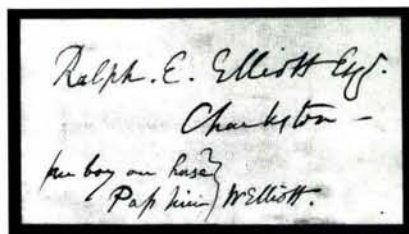 Ralph. E. Elliott Esqr.
Charleston –
per boy on horse }
Pass him } W Elliott.